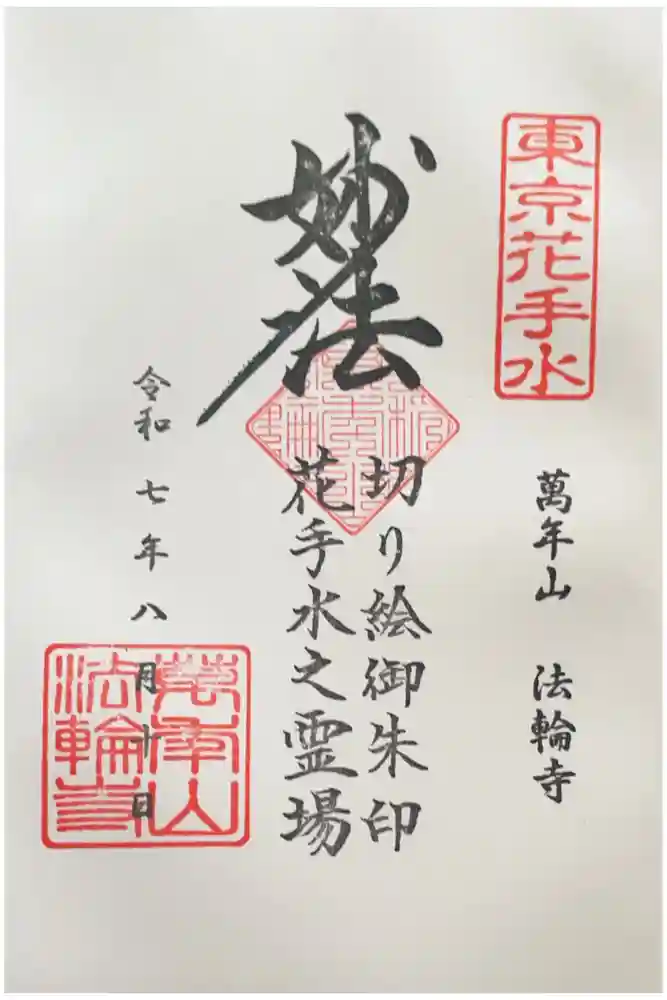 東京花手水
萬年山 法輪寺
妙法
切り絵御朱印
花手水之霊場
令和 七年八月十日
萬年山
法輪寺